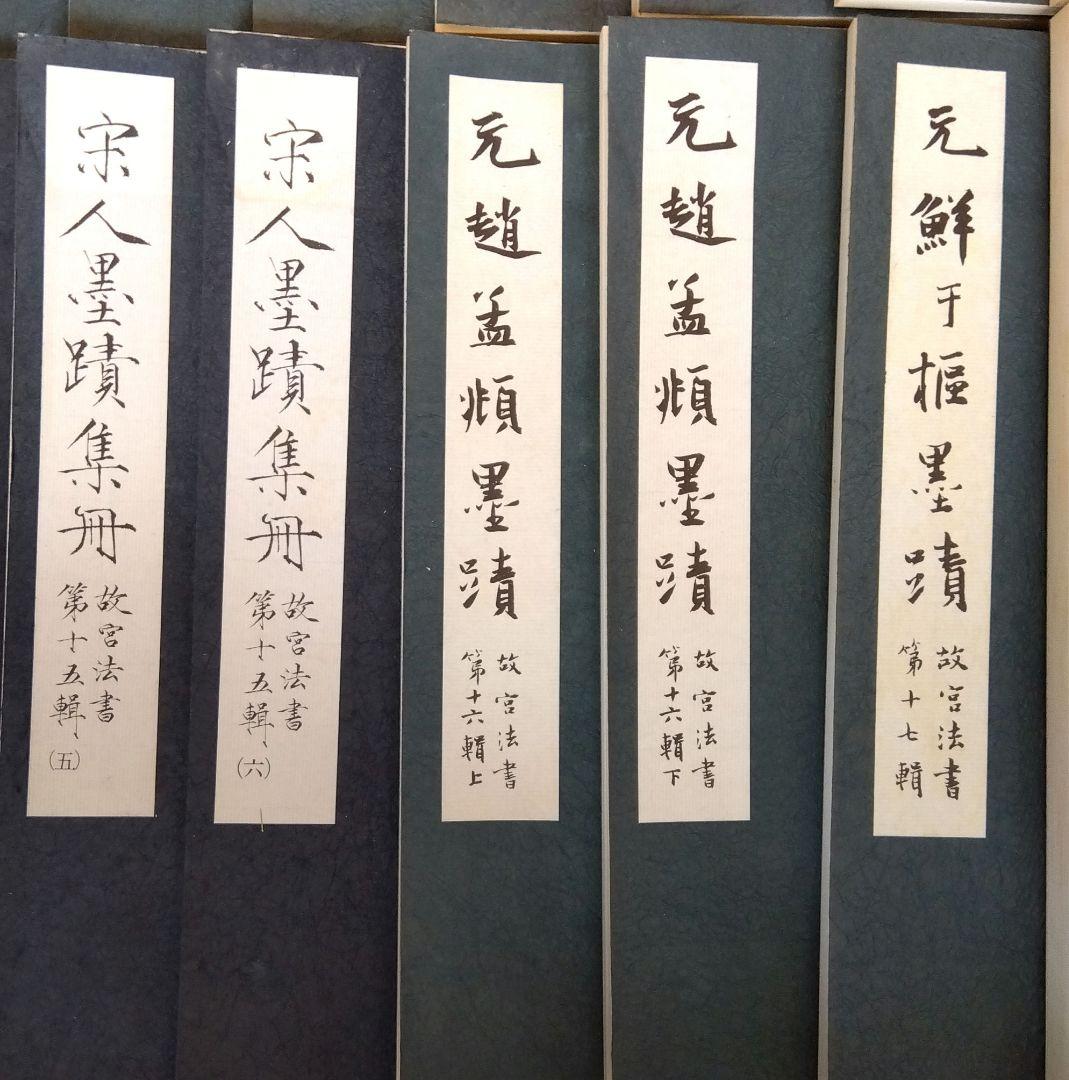 宋人墨蹟集冊
故宮法書
第十五輯、
(五)
宋人墨蹟集冊
故宮法書
第十五輯、
(六)
元趙孟頫墨蹟
故宮法書
第十六輯上
元趙孟頫墨蹟
故宮法書
第十六輯下
元鮮于樞墨蹟
故宮法書
第十七輯